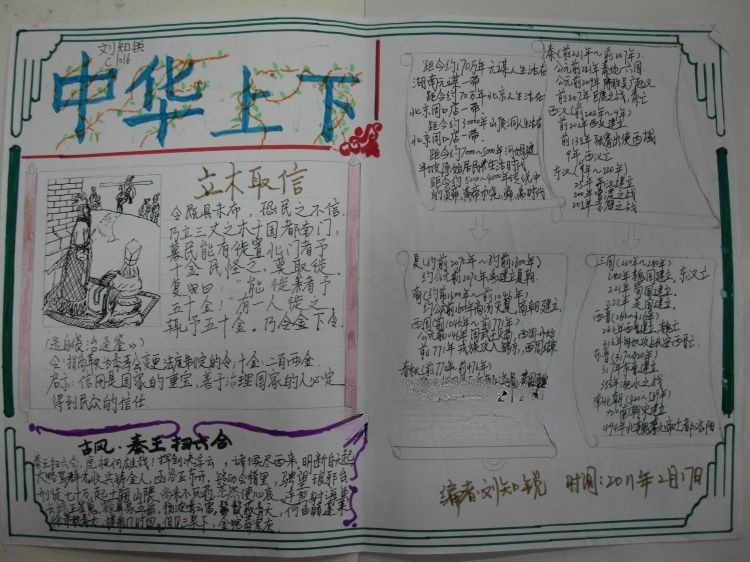 刘知锐
中华上下
立木取信
令既具未布，恐民之不信。
乃立三丈之木于国都南门，
募民能有徙置北门者予
十金。民怪之，莫敢徙。
复曰："能徙者予
五十金！"有一人徙之，
辄予五十金。乃令金下令。
（选自《资治通鉴》）
令：指商鞅为秦孝公变更法度制定的令，十金：二百两金。
启示：信用是国家的重宝，善于治理国家的人必定
得到民众的信任。
古风·秦王扫六合
秦王扫六合，虎视何雄哉！挥剑决浮云，诸侯尽西来。明断自天启
大略驾群才。收兵铸金人，函谷正东开。铭功会稽岭，骋望琅邪台
刑徒七十万，起土骊山隈。尚采不死药，茫然使心哀。连弩射海鱼
距今约170万年元谋人生活在
湖南元谋一带
距今约70万年北京人生活在
北京周口店一带
距今约3000年山顶洞人生活在
北京周口店一带
距今约7000~5000年河姆渡
半坡原始居民生活时代
距今约5000~4000年传说中
的炎帝,黄帝,尧,舜,禹时代
秦(前221年~前207年)
公元前221年秦统一六国
公元前209年陈胜吴广起义
前207年巨鹿之战,秦亡
西汉(前202年~9年)
前202年西汉建立
前138年张骞出使西域
9年西汉亡
东汉(25年~220年)
25年东汉建立
200年官渡之战
208年赤壁之战
夏(约前2070年~约前1600年)
约公元前2070年禹建立夏朝
商(约前1600年~前1046年)
约公元前1600年商汤灭夏,商朝建立
西周(前1046年~前771年)
公元前1046年周武王灭商,西周开始
前771年犬戎攻入镐京,西周结束
春秋(前770年~前476年)
三国(220年~280年)
220年魏国建立,东汉亡
221年蜀国建立
222年吴国建立
西晋(265~316年)
265年西晋建立,魏亡
316年匈奴攻占长安,西晋亡
东晋(317~420年)
317年东晋建立
383年淝水之战
南北朝(420~589年)
494年北魏孝文帝迁都洛阳
编者:刘知锐 时间:2011年2月17日